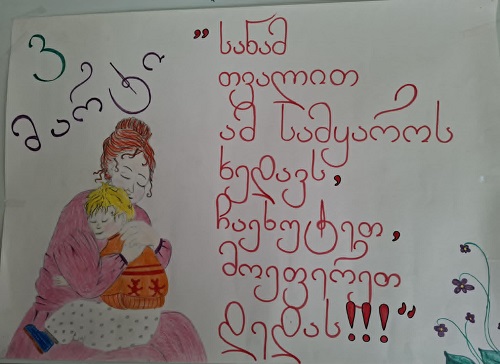 3
მარტი
„სანამ
თვალით
ამ სამყაროს
ხედავს,
ჩაეხუტეთ,
მოეფერეთ
დედას!!!“